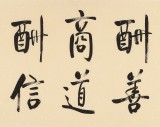 酬善
商道
酬信